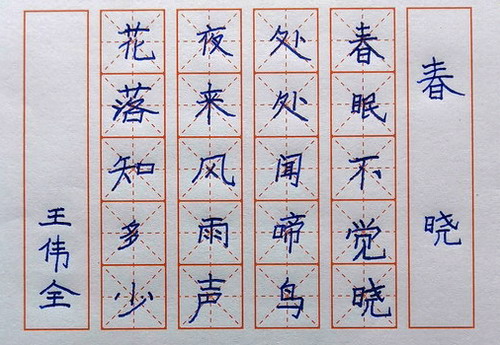 春晓
春眠不觉晓
处处闻啼鸟
夜来风雨声
花落知多少
王伟全